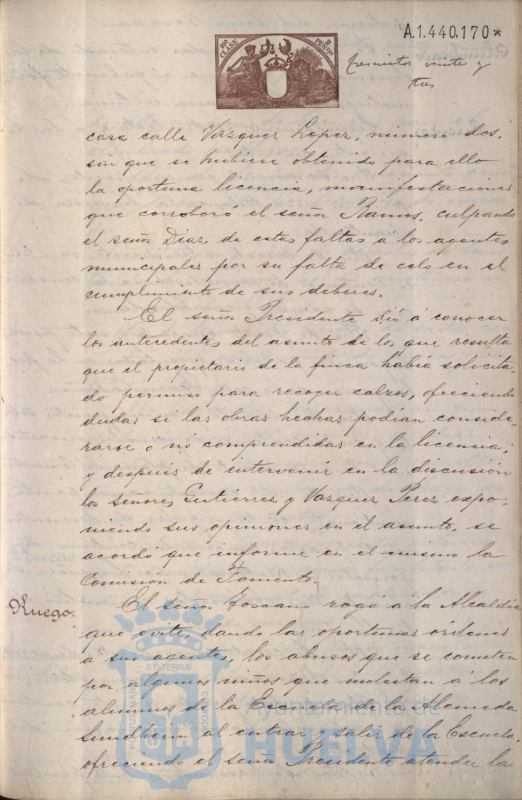 A.1.440.170*
10ª CLASE
2 PESETAS
trescientos veinte y
tres
casa calle Vázquez Lopez, número dos,
sin que se hubiese obtenido para ello
la oportuna licencia, manifestaciones
que corroboró el señor Ramos, culpando
el señor Diaz de estas faltas á los agentes
municipales por su falta de celo en el
cumplimiento de sus deberes.
El señor Presidente dió á conocer
los antecedentes del asunto de los que resulta
que el propietario de la finca habia solicita-
do permiso para recoger calzos, ofreciendo
dudas si las obras hechas podian conside-
rarse ó nó comprendidas en la licencia;
y después de intervenir en la discusión
los señores Gutierrez y Vazquez Perez expo-
niendo sus opiniones en el asunto, se
acordó que informe en el mismo la
Comision de Fomento.
Ruego.
El señor Toscano rogó á la Alcaldia
que evite, dando las oportunas órdenes
á sus agentes, los abusos que se cometen
por algunos niños que molestan á los
alumnos de la Escuela de la Alameda
Sundheim al entrar y salir de la Escuela,
ofreciendo el señor Presidente atender la
PORTUS MARIS
ET TERRÆ
CUSTODIA
Ayuntamiento de
HUELVA